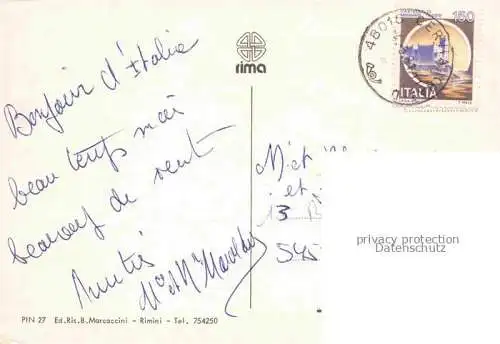 Bonjour d'Italia
beau temps mais
beaucoup de vent
Amitiés
rima
150
48015 CERVIA
ITALIA
M. et
et
13
545
privacy protection
Datenschutz
PIN 27 Ed. Ris. B. Marcaccini - Rimini - Tel. 754250